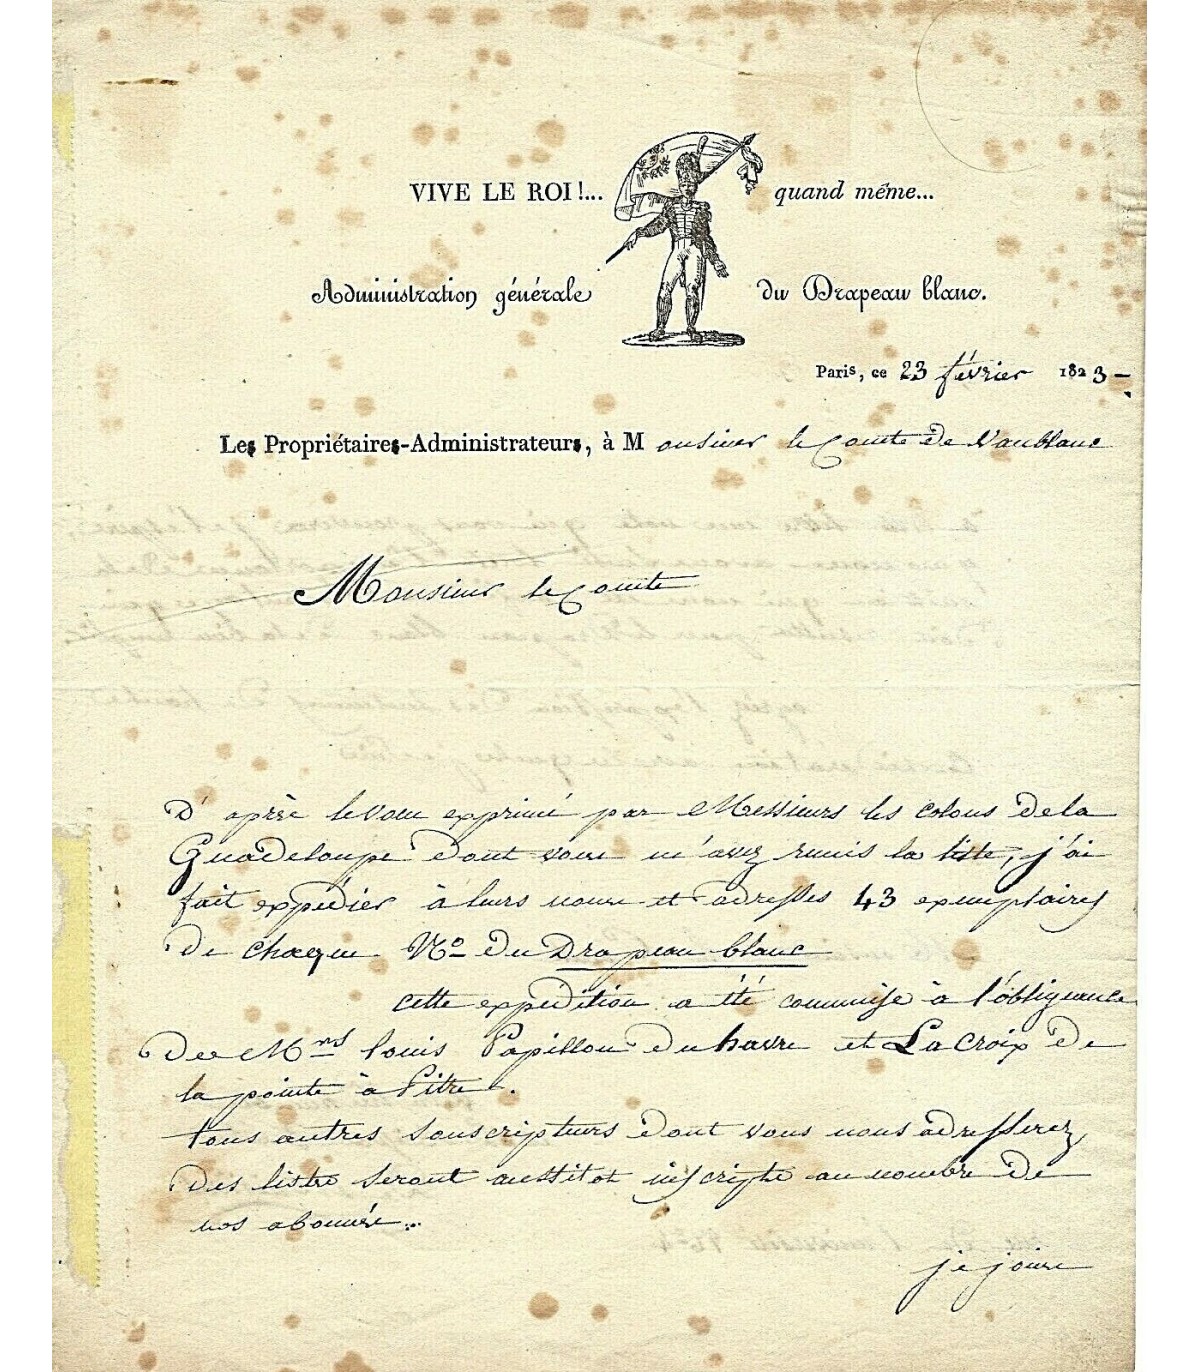 VIVE LE ROI !... quand même...
Administration générale du Drapeau blanc.
Paris, ce 23 février 1823 -
Les Propriétaires-Administrateurs, à Monsieur le Comte de Vaublanc
Monsieur le Comte
D'après le vœu exprimé par Messieurs les colons de la
Guadeloupe dont vous m'avez remis la liste, j'ai
fait expédier à leurs noms et adresses 43 exemplaires
de chaque No du Drapeau blanc
cette expedition a été commise à l'obligeance
de Mrs louis Papillon du havre et La Croix de
la pointe à Pitre.
tous autres souscripteurs dont vous nous adresserez
des liste seront aussitot inscripte au nombre de
nos abonnés..
je joins